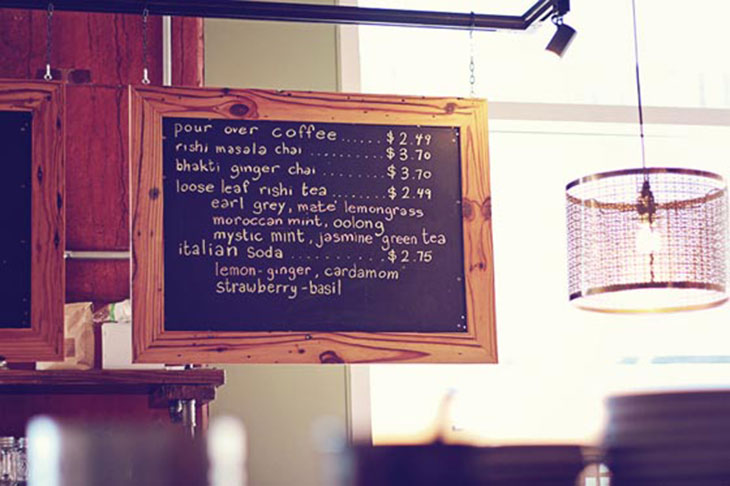 pour over coffee ..... $2.49
rishi masala chai ........... $3.70
bhakti ginger chai ......... $3.70
loose leaf rishi tea ........ $2.49
earl grey, maté lemongrass
moroccan mint, oolong
mystic mint, jasmine green tea
italian soda ............. $2.75
lemon-ginger, cardamom
strawberry-basil